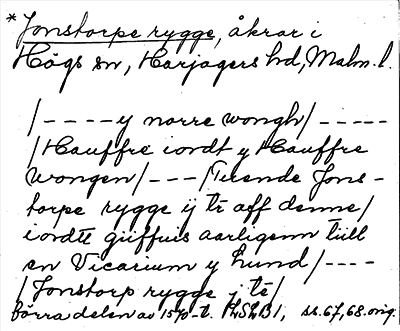 *Jonstorpe rygge, åkrar i
Högs sn, Harjagers hd, Malm. l.
/----y norre wongh/-----
/Hauffre iordt y Hauffre
wongen/---/Tiende Jons-
torpe rygge ij tr aff denne/
iordtt giffuis aarligenn tiill
en Vicarium y Lund/----
/Jonstorp rygge j tö/
förra delen av 1570-t. LSLB1, ss. 67, 68. orig.